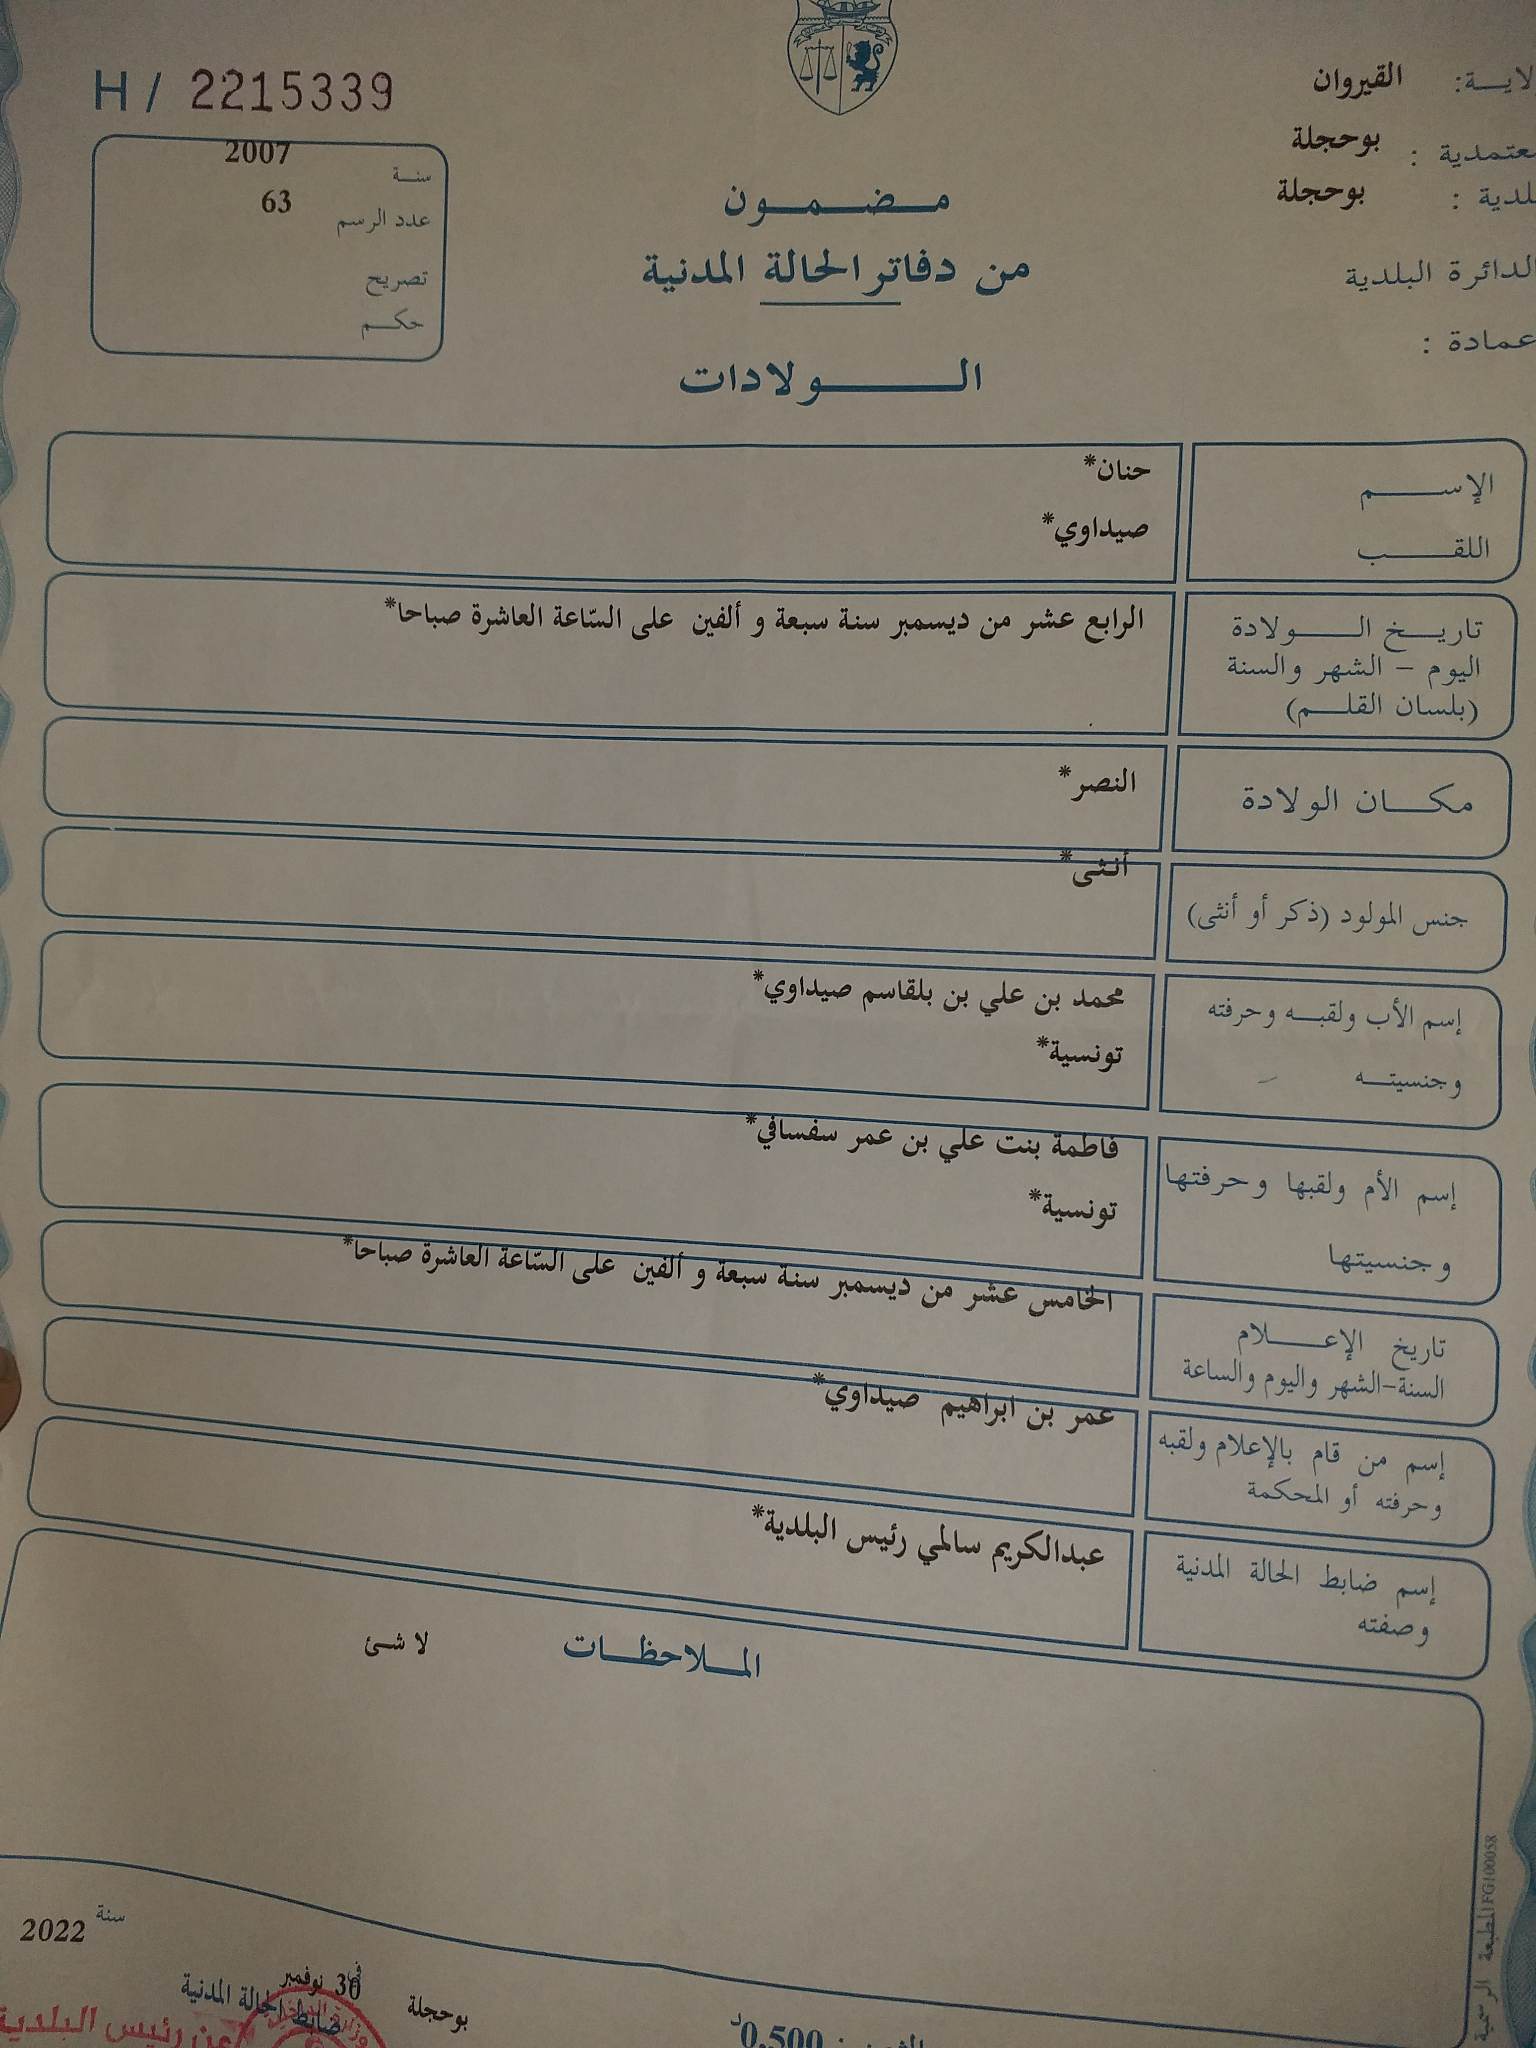 H / 2215339
لايـــة: القيروان
عتمدية : بوحجلة
لدية : بوحجلة
لدائرة البلدية
عمادة :
سنــة 2007
عدد الرسم 63
تصريح
حكــم
مـــضــمــون
من دفاتر الحالة المدنية
الـــــولادات
الإســـــم حنان*
اللقــــب صيداوي*
تاريــخ الـــولادة الرابع عشر من ديسمبر سنة سبعة و ألفين على السّاعة العاشرة صباحا*
اليوم – الشهر والسنة
(بلسان القلــم)
مكـــان الولادة النصر*
جنس المولود (ذكر أو أنثى) أنثى*
إسم الأب ولقبــه وحرفته محمد بن علي بن بلقاسم صيداوي*
وجنسيتــه تونسية*
إسم الأم ولقبها وحرفتها فاطمة بنت علي بن عمر سفسافي*
وجنسيتها تونسية*
تاريخ الإعـــلام الخامس عشر من ديسمبر سنة سبعة و ألفين على السّاعة العاشرة صباحا*
السنة-الشهر واليوم والساعة
إسم من قام بالإعلام ولقبه عمر بن ابراهيم صيداوي*
وحرفته أو المحكمة
إسم ضابط الحالة المدنية عبدالكريم سالمي رئيس البلدية*
وصفته
المــلاحظــات لا شئ
المطبعة الرسمية FG100058
سنة 2022
بوحجلة في 30 نوفمبر
ضابط الحالة المدنية
عن رئيس البلدية
0,500 د